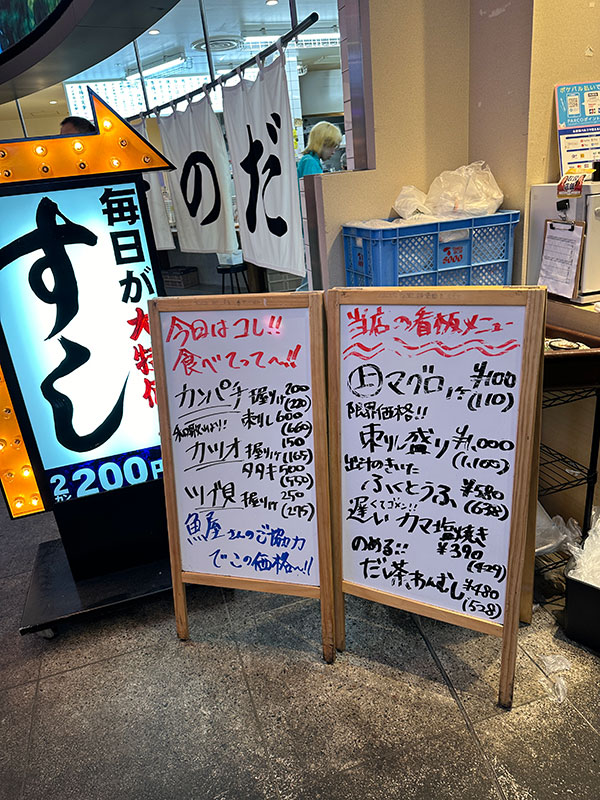 のだ
毎日が
大特価
すし
2カン200円
今日はコレ!!
食べてって〜!!
カンパチ 握り1ケ 200
(220)
和歌山より!! 刺し 600
(660)
カツオ 握り1ケ 150
(165)
タタキ 500
(550)
ツブ貝 握り1ケ 250
(275)
魚屋さんのご協力
でこの価格〜!!
当店の看板メニュー
上マグロ 1ケ ¥100
(110)
限界価格!!
刺し盛り ¥1,000
(1,100)
出汁のきいた
ふくとうふ ¥580
(638)
遅くてゴメン!!
遅い カマ塩焼き
のめる!! ¥390
(429)
だし茶わんむし ¥480
(528)
ポケパル払いで
PARCOポイント